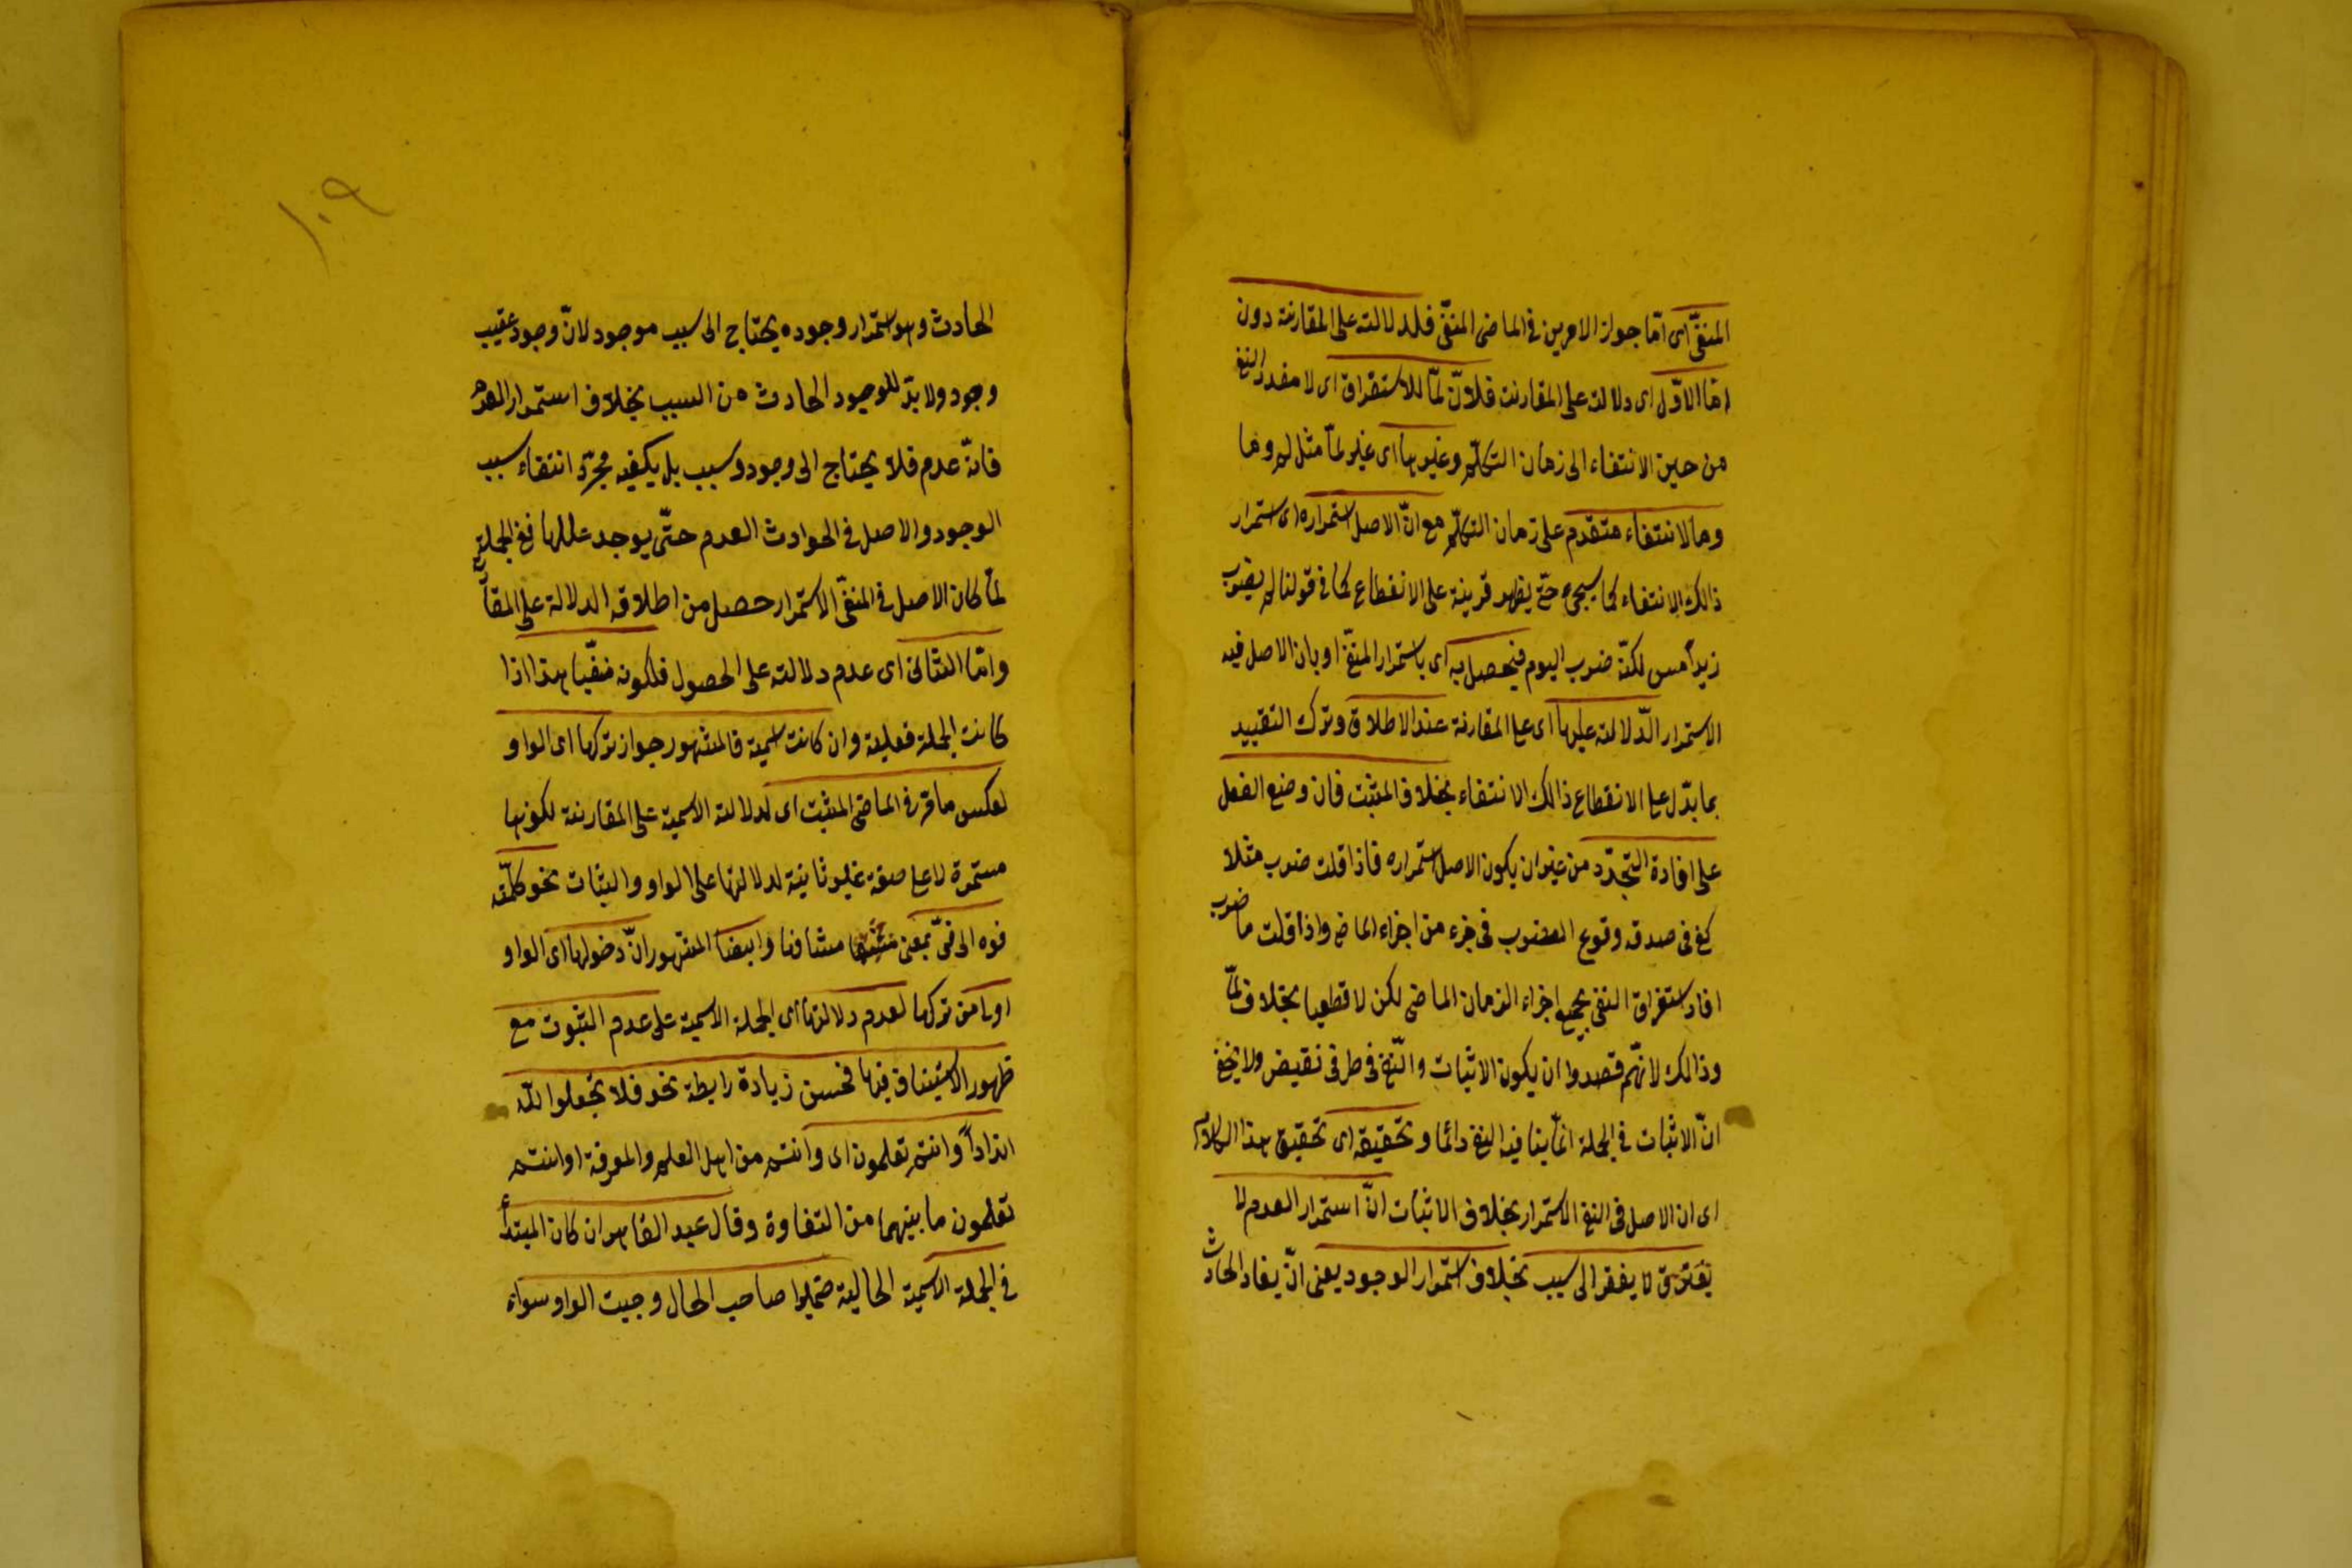 المنفىّ اى امّا جواز الامرين فى الماضى المنفىّ فلدلالته على المقارنة دون
امّا الاوّل اى دلالته على المقارنت فلانّ لمّا للاستغراق اى لامتداد النفى
من حين الانتفاء الى زمان التكلّم وغيرها اى غير لمّا مثل لم وما
وما لانتفاء متقدم على زمان التكلّم مع انّ الاصل استمراره اى استمرار
ذالك الانتفاء كما سيجىء حتى يظهر قرينة على الانقطاع كما فى قولنا لم يضرب
زيد أمس لكنّه ضرب اليوم فيحصل به اى باستمرار المنفىّ او بان الاصل فيه
الاستمرار الدّلالته عليها اى على المقارنة عند الاطلاق وترك التقييد
بما يدّل على الانقطاع ذالك الانتفاء بخلاف المثبت فان وضع الفعل
على افادة التجدّد من غير ان يكون الاصل استمراره فاذا قلت ضرب مثلا
كفى فى صدقه وقوع الضرب فى جزء من اجزاء الماضى واذا قلت ما ضرب
افاد استغراق النفى بجميع اجزاء الزمان الماضى لكن لا قطعيا بخلاف لمّا
وذالك لانّهم قصدوا ان يكون الاثبات والنّفى فى طرفى نقيض ولا يخفى
انّ الاثبات فى الجملة انّما ينافيه النفى دائما وتحقيقه اى تحقيق هذا الكلام
اى ان الاصل فى النفى الاستمرار بخلاف الاثبات انّ استمرار العدم لا
يفتقر الى سبب بخلاف استمرار الوجود يعنى انّ بقاء الحادث
١٠٩
الحادث وهو استمرار وجوده يحتاج الى سبب موجود لانّ وجود عقيب
وجود ولا بدّ للوجود الحادث من السبب بخلاف استمرار العدم
فانّه عدم فلا يحتاج الى وجود وسبب بل يكفيه مجرّد انتفاء سبب
الوجود والاصل فى الحوادث العدم حتّى يوجد عللها ففى الجملة
لمّا كان الاصل فى المنفىّ الاستمرار حصل من اطلاقه الدلالة على المقارنة
وامّا الثانى اى عدم دلالته على الحصول فلكونه منفيّا هذا اذا
كانت الجملة فعلية وان كانت اسمية فالمشهور جواز تركها اى الواو
لعكس ما مرّ فى الماضى المثبت اى لدلالته الاسمية على المقارنة لكونها
مستمرة لا على صفة غير ثابتة لدلالتها على الواو والثبات نحو كلّمته
فوه الى فىّ بمعنى مشافها وايضا المشهور انّ دخولها اى الواو
اولى من تركها لعدم دلالتها اى الجملة الاسمية على عدم الثبوت مع
ظهور الاستيناف فيها فحسن زيادة رابطة نحو فلا تجعلوا للّه
انداداً وانتم تعلمون اى وانتم من اهل العلم والمعرفة او انتم
تعلمون ما بينهما من التفاوة وقال عبد القاهر ان كان المبتدأ
فى الجملة الاسمية الحالية ضميرا صاحب الحال وجبت الواو سواء